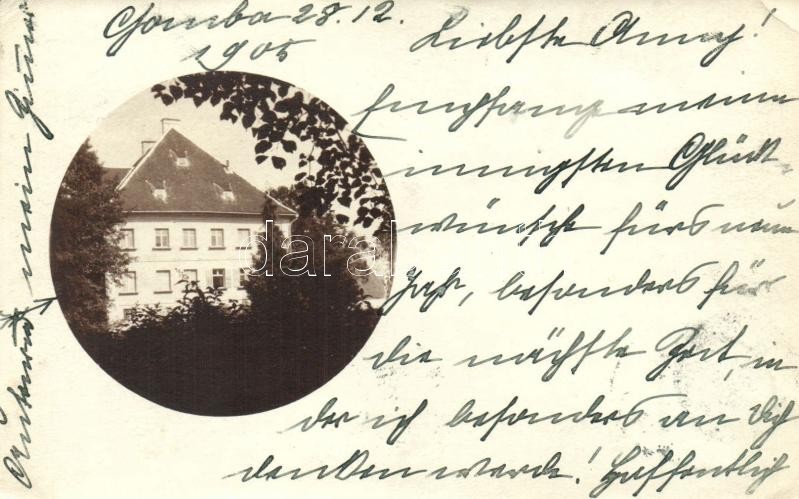 Csomba 28. 12.
1905
Liebste Anny!
Empfange meine
innigsten Glück-
wünsche fürs neue
Jahr, besonders für
die nächste Zeit, in
der ich besonders an Dich
denken werde! Hoffentlich
mein
darabanth